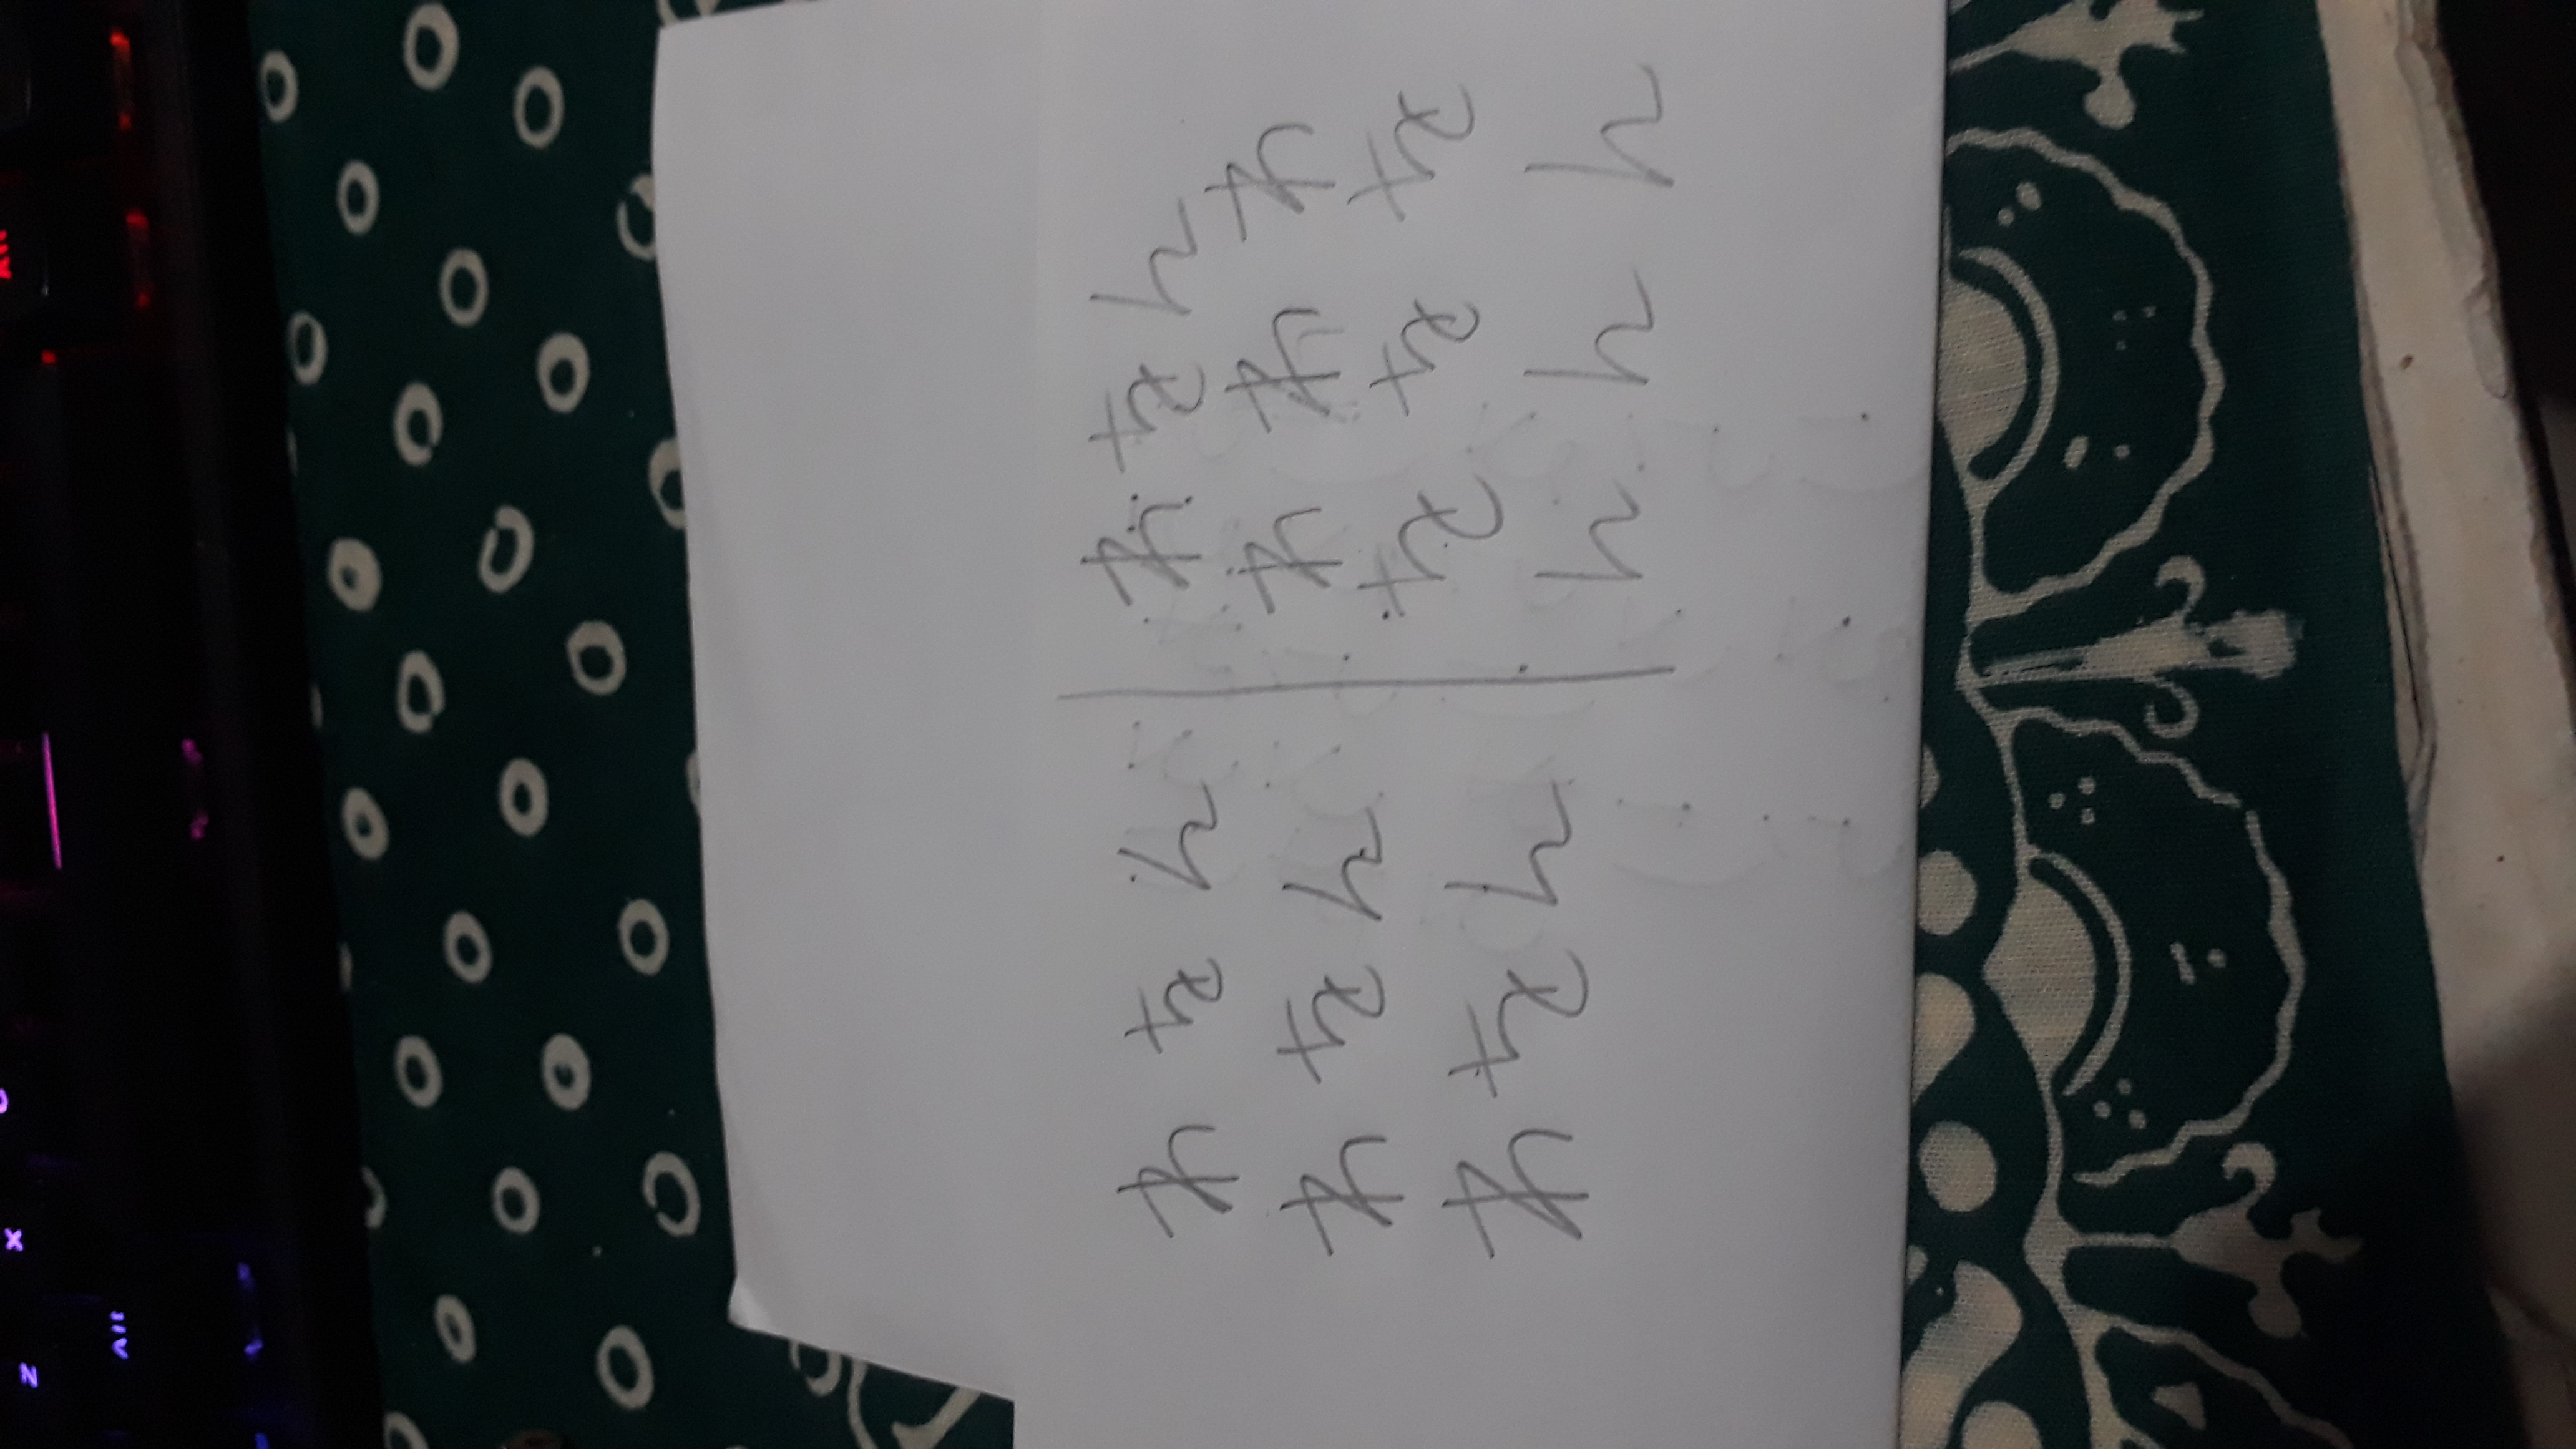 Z X C Alt
Alt
わ を ん
わ を ん
わ を ん
わ を ん
わ わ わ
を を を
ん ん ん